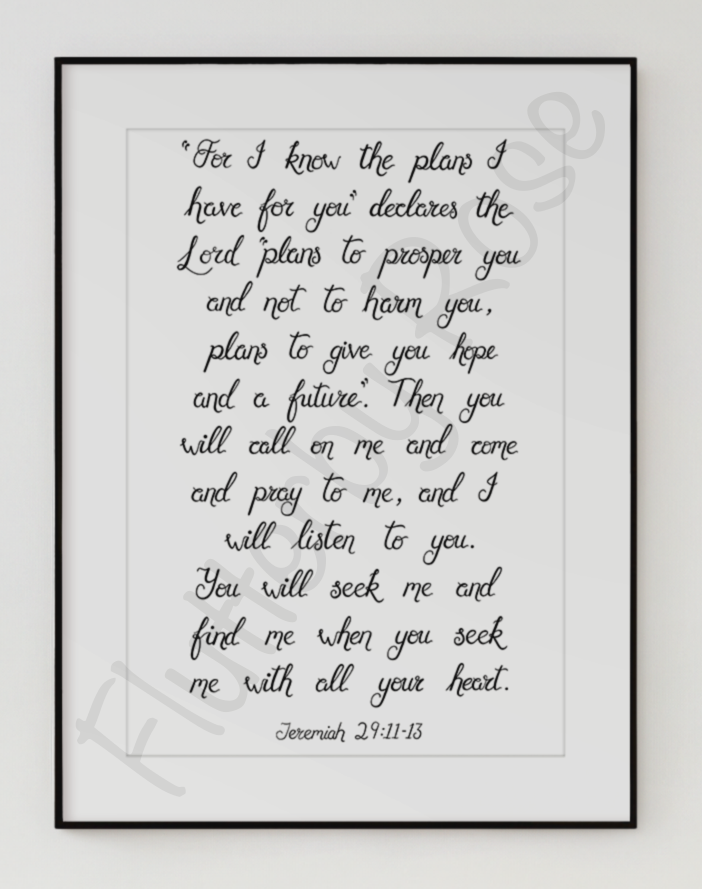 "For I know the plans I
have for you" declares the
Lord "plans to prosper you
and not to harm you,
plans to give you hope
and a future". Then you
will call on me and come
and pray to me, and I
will listen to you.
You will seek me and
find me when you seek
me with all your heart.
Jeremiah 29:11-13
Flutterby Rose